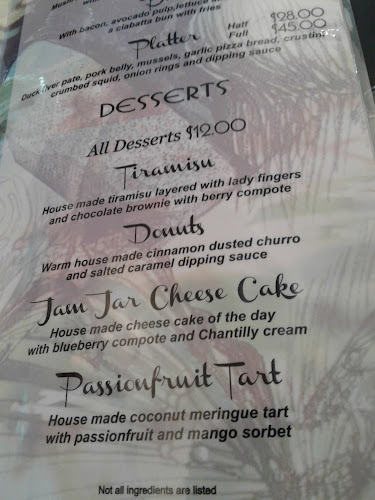 With bacon, avocado pulp, lettuce
a ciabatta bun with fries
Platter Half $28.00
Full $45.00
Duck liver pate, pork belly, mussels, garlic pizza bread, crustini
crumbed squid, onion rings and dipping sauce
DESSERTS
All Desserts $12.00
Tiramisu
House made tiramisu layered with lady fingers
and chocolate brownie with berry compote
Donuts
Warm house made cinnamon dusted churro
and salted caramel dipping sauce
Jam Jar Cheese Cake
House made cheese cake of the day
with blueberry compote and Chantilly cream
Passionfruit Tart
House made coconut meringue tart
with passionfruit and mango sorbet
Not all ingredients are listed